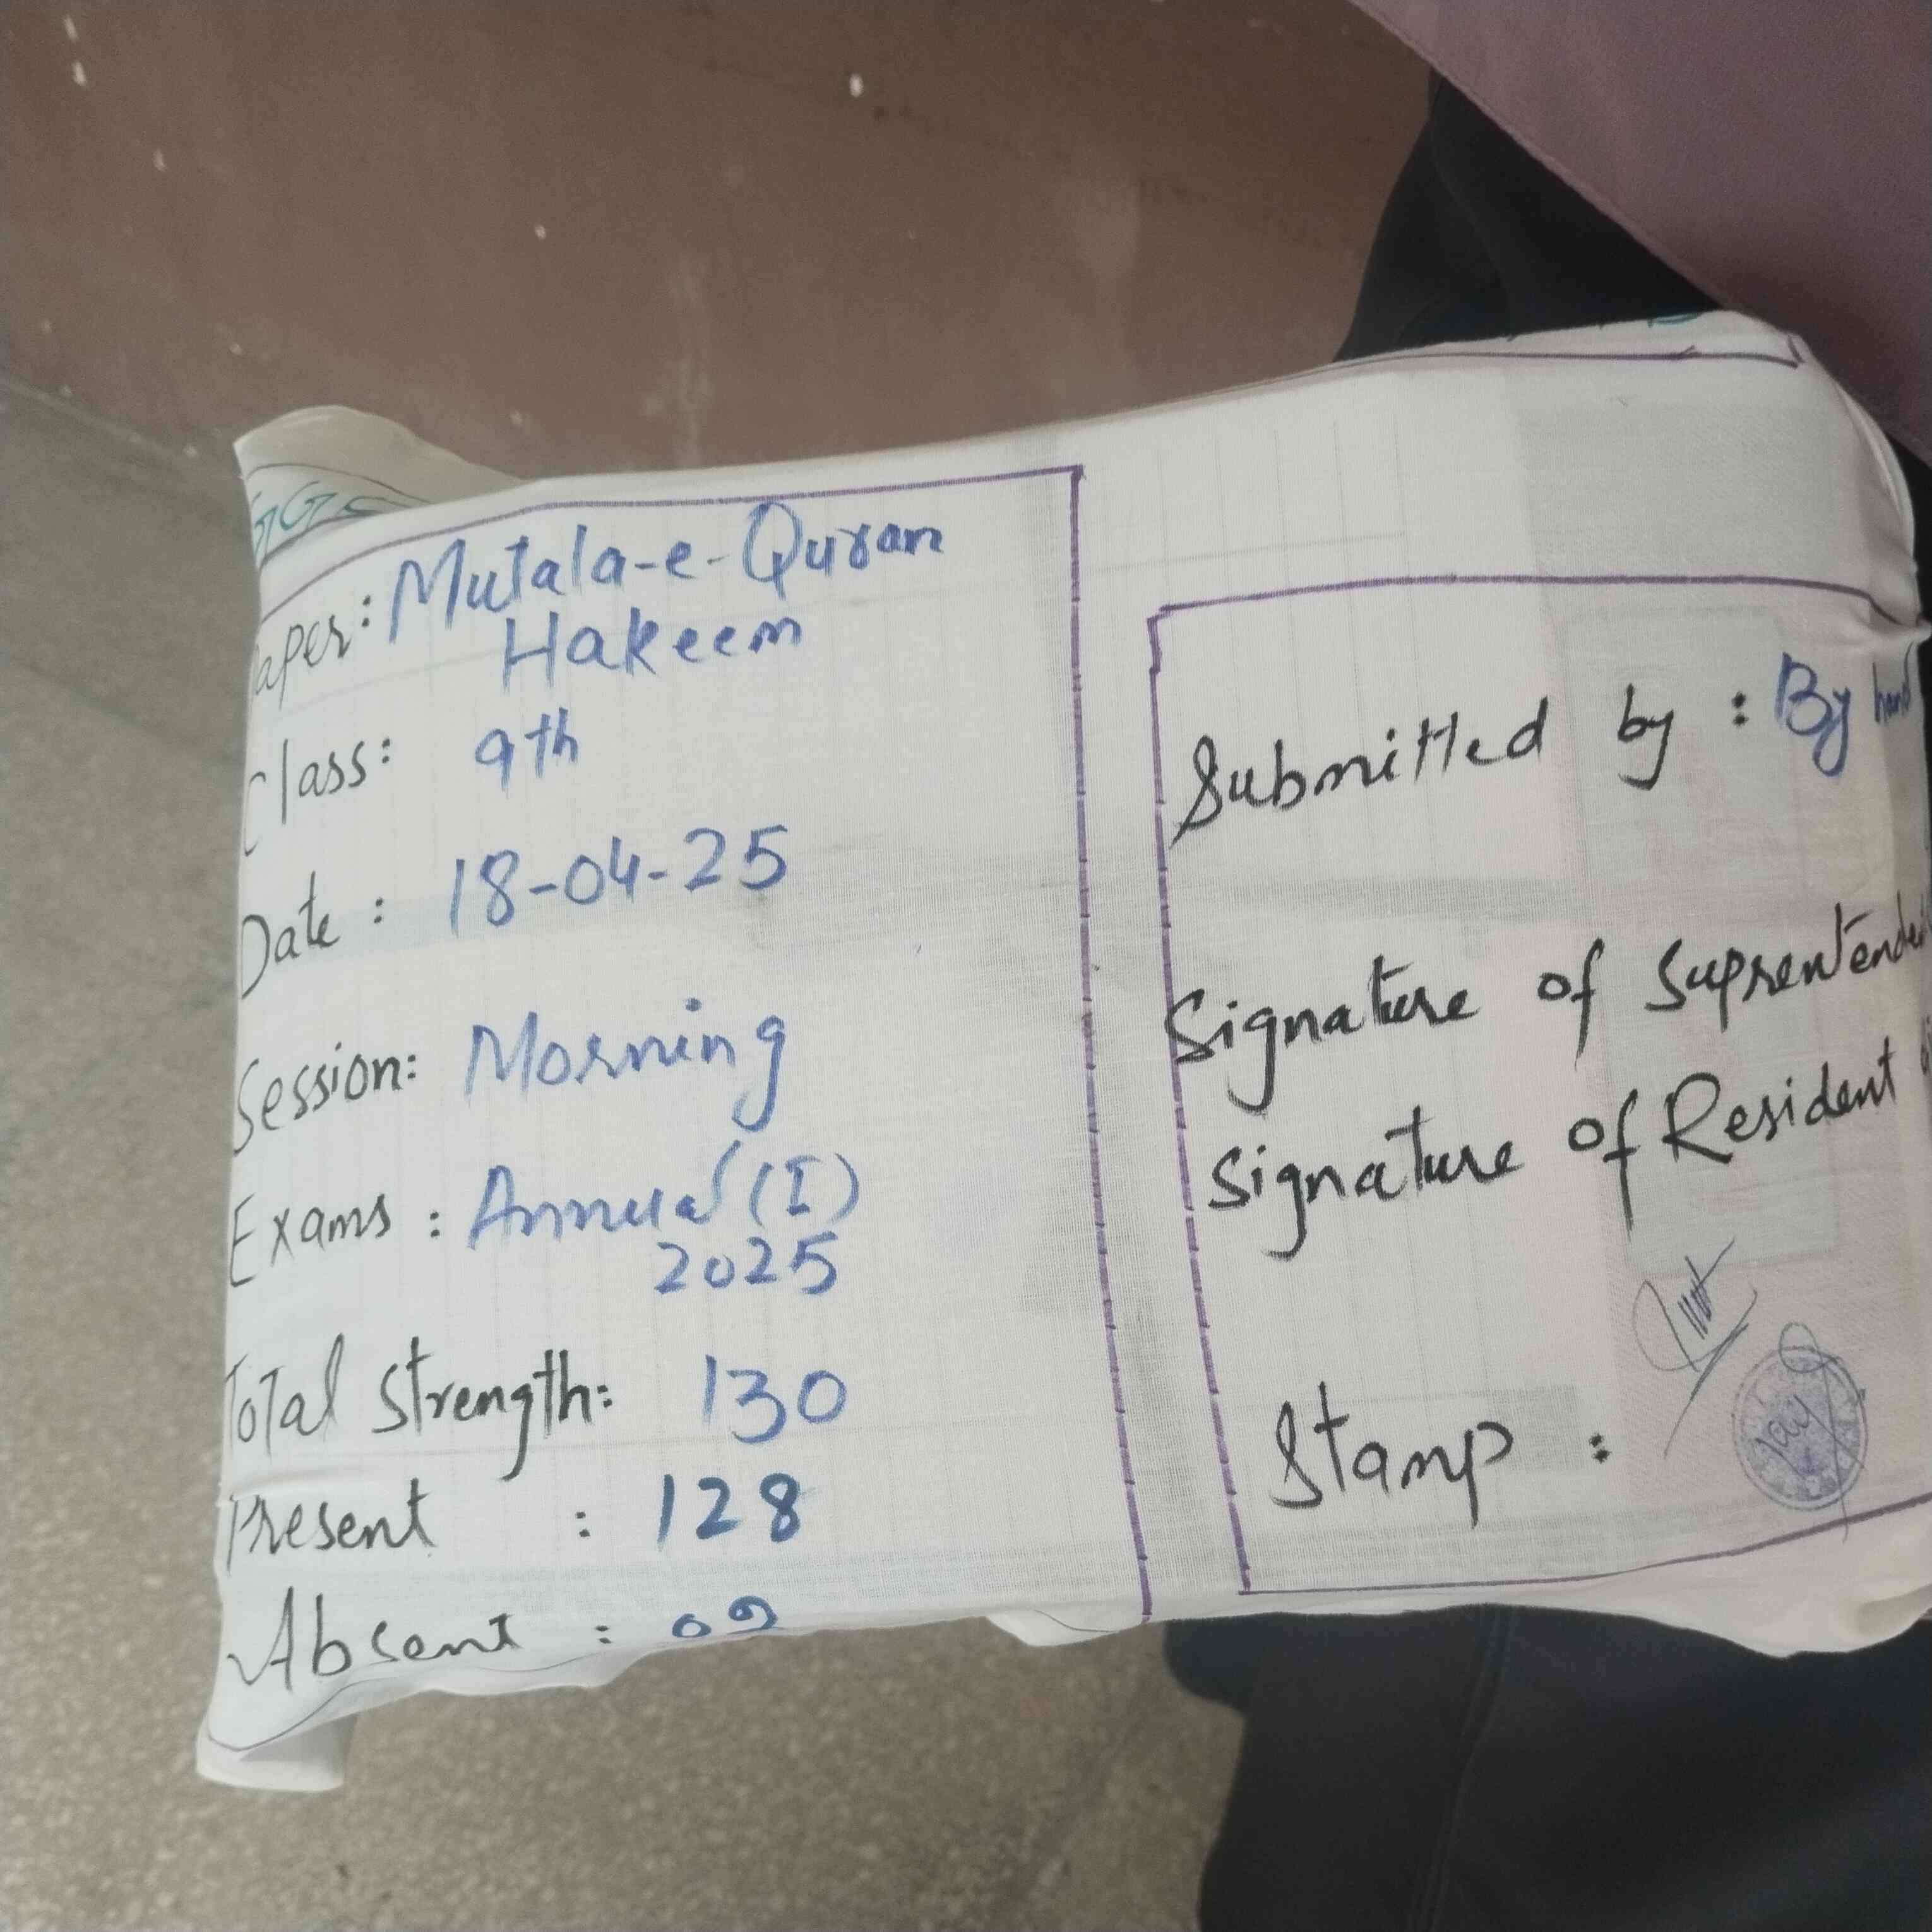 GG
Paper: Mutala-e-Quran
Hakeem
Class: 9th
Date: 18-04-25
Session: Morning
Exams: Annual (I)
2025
Total Strength: 130
Present : 128
Absent :
Submitted by : By hand
Signature of Suprentende
Signature of Resident
Stamp :